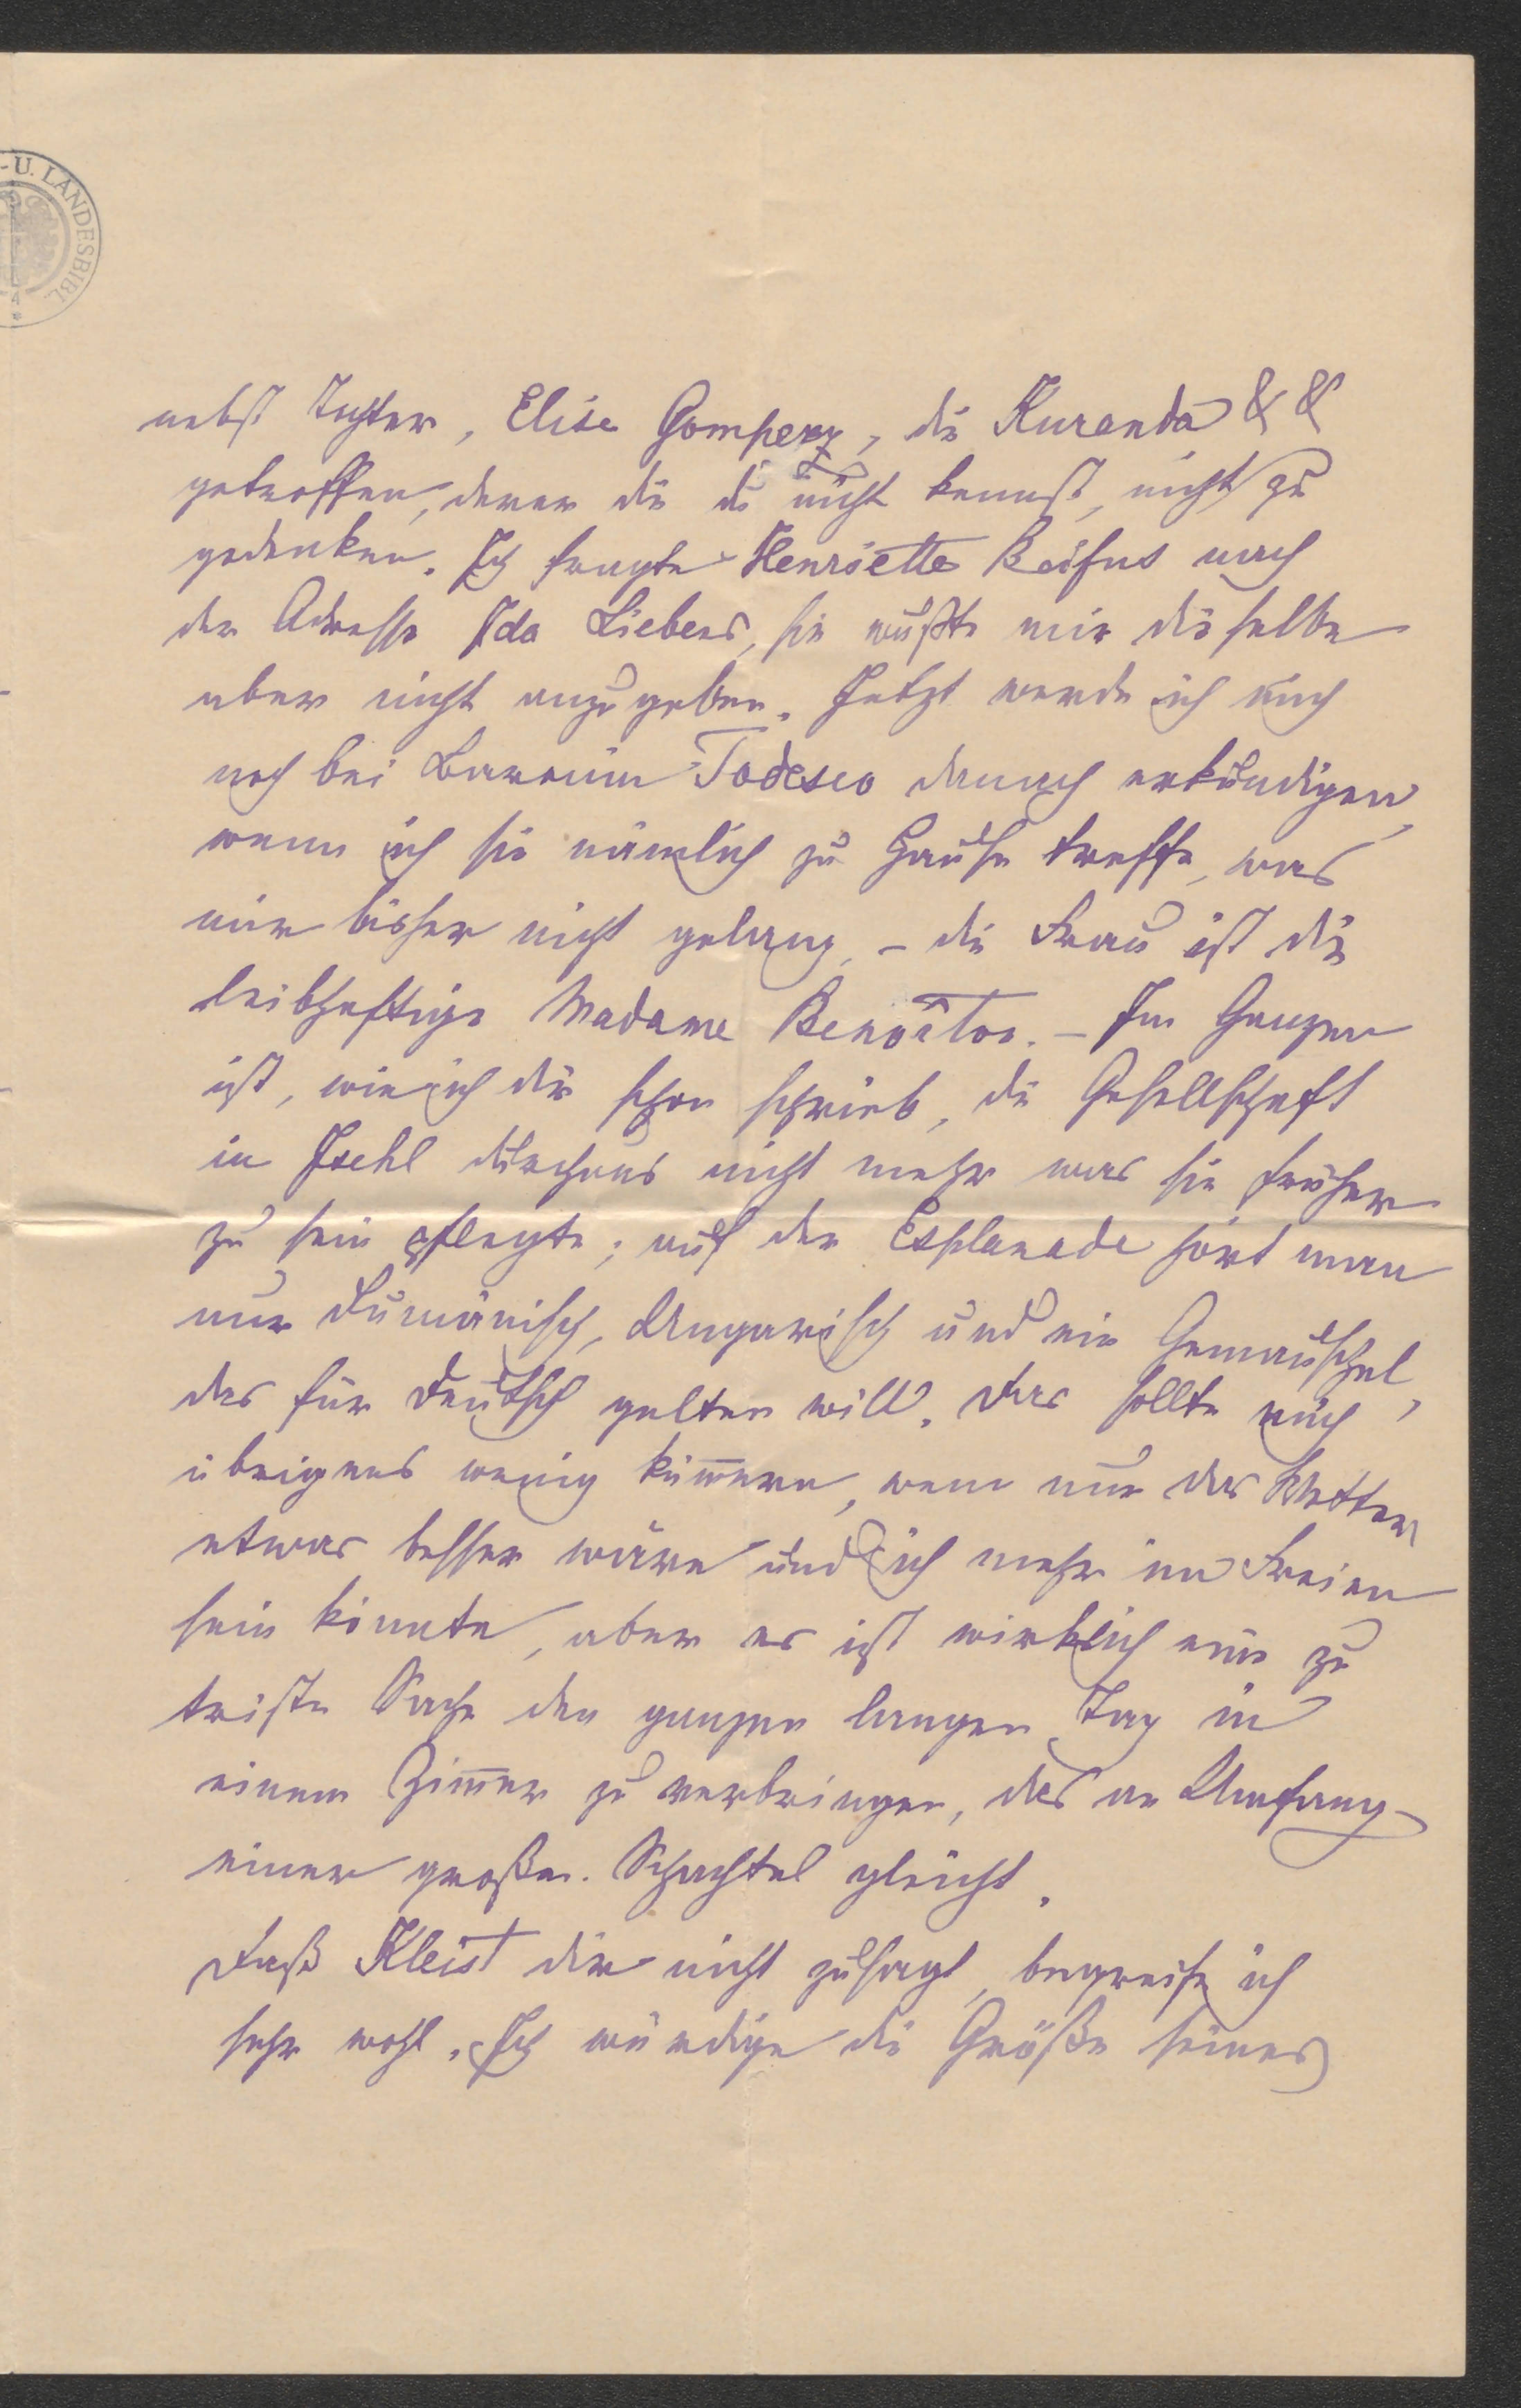 -U. LANDESBIBL.
nebst Tochter, Elise Gomperz, die Kuranda & &
getroffen, derer die du nicht kennst, nicht zu
gedenken. Ich fragte Henriette Beifus nach
der Adresse Ida Liebens, sie wußte mir dieselbe
aber nicht anzugeben. Jetzt werde ich mich
noch bei Baronin Todesco danach erkundigen,
wenn ich sie nämlich zu Hause treffe, was
mir bisher nicht gelang, – die Frau ist die
leibhaftige Madame Benoîton. – Im Ganzen
ist, wie ich dir schon schrieb, die Gesellschaft
in Ischl durchaus nicht mehr was sie früher
zu sein pflegte; auf der Esplanade hört man
nur Rumänisch, Ungarisch und ein Gemauschel,
das für Deutsch gelten will. Das sollte mich
übrigens wenig kümmern, wenn nur das Wetter
etwas besser wäre und ich mehr im Freien
sein könnte, aber es ist wirklich eine zu
triste Sache den ganzen langen Tag in
einem Zimmer zu verbringen, das an Umfang
einer großen Schachtel gleicht.
Daß Kleist dir nicht zusagt, begreife ich
sehr wohl. Ich würdige die Größe seines